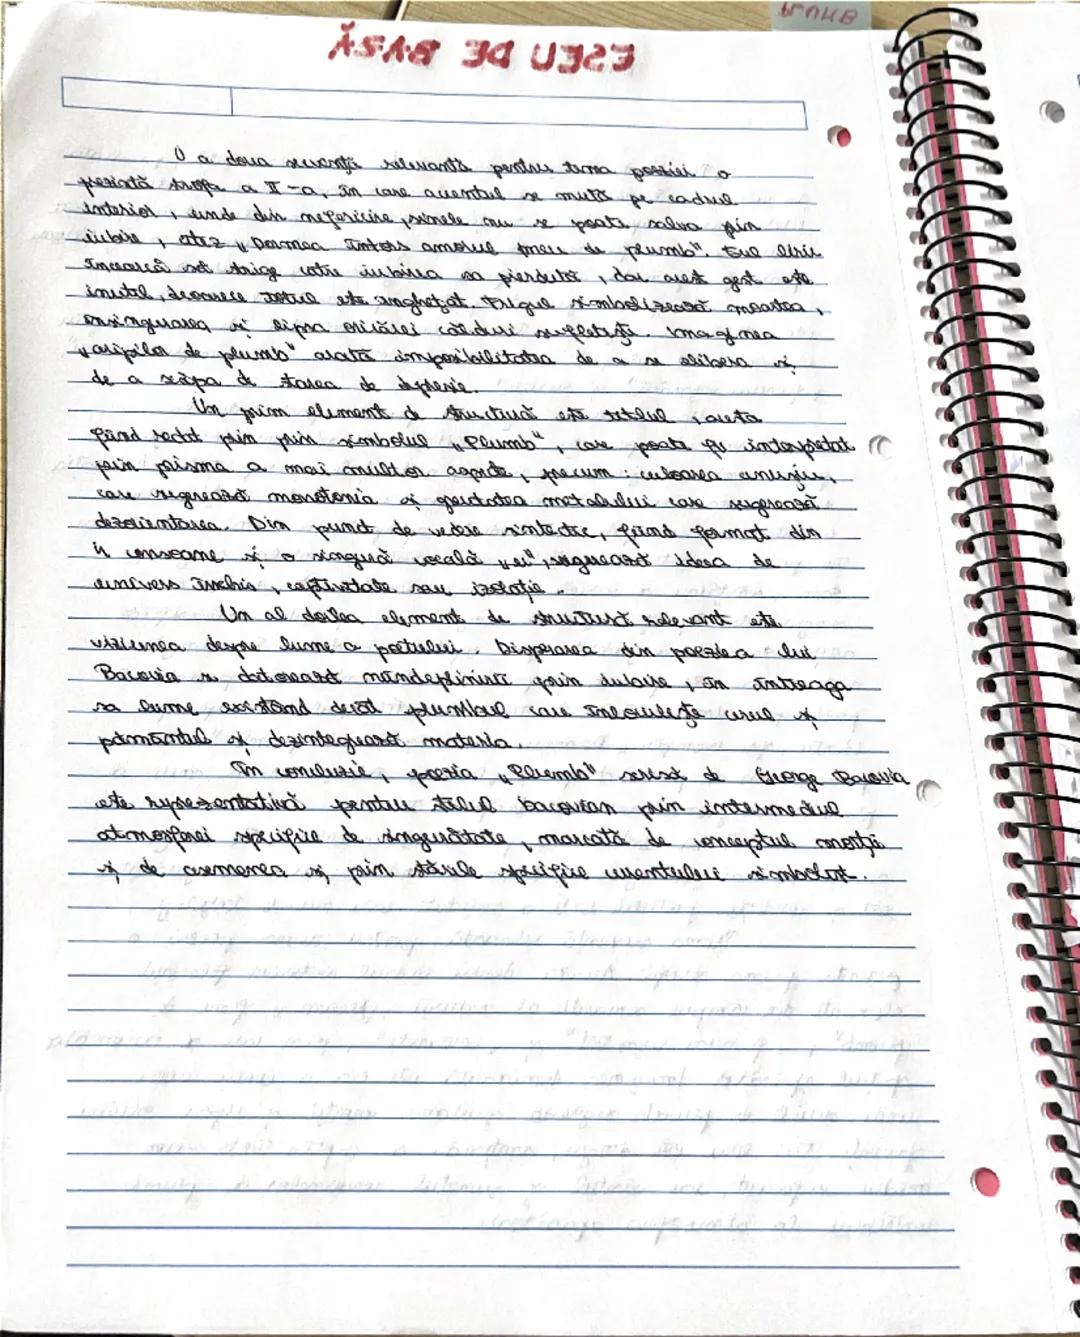 ESEU DE BAZĂ
O a doua secvență relevantă pentru tema poeziei o
prezintă strofa a II-a, în care accentul se mută pe cadrul
interior, unde din nefericire, sinele nu se poate salva prin
iubire, citez „Dormea întors amorul meu de plumb". Eul liric
încearcă să strige către iubirea sa pierdută, dar acest gest este
inutil, deoarece totul este înghețat. Frigul simbolizează moartea,
însingurarea și lipsa oricărei călduri sufletești. Imaginea
„aripilor de plumb" arată imposibilitatea de a se elibera și
de a scăpa de starea de depresie.
Un prim element de structură este titlul, acesta
fiind redat prin prin simbolul „Plumb", care poate fi interpretat
prin prisma a mai multor aspecte, precum: culoarea cenușiu,
care sugerează monotonia și greutatea metalului care sugerează
dezorientarea. Din punct de vedere sintactic, fiind format din
4 consoane și o singură vocală „u", sugerează ideea de
univers închis, captivitate sau izolație.
Un al doilea element de structură relevant este
viziunea despre lume a poetului. Disperarea din poezia lui
Bacovia se datorează neîndeplinirii prin iubire, în întreaga
sa lume existând decât plumbul care înlocuiește cerul și
pământul și dezintegrează materia.
În concluzie, poezia „Plumb" scrisă de George Bacovia
este reprezentativă pentru stilul bacovian prin intermediul
atmosferei specifice de singurătate, marcată de conceptul morții
și de asemenea și prin stările specifice curentului simbolist.